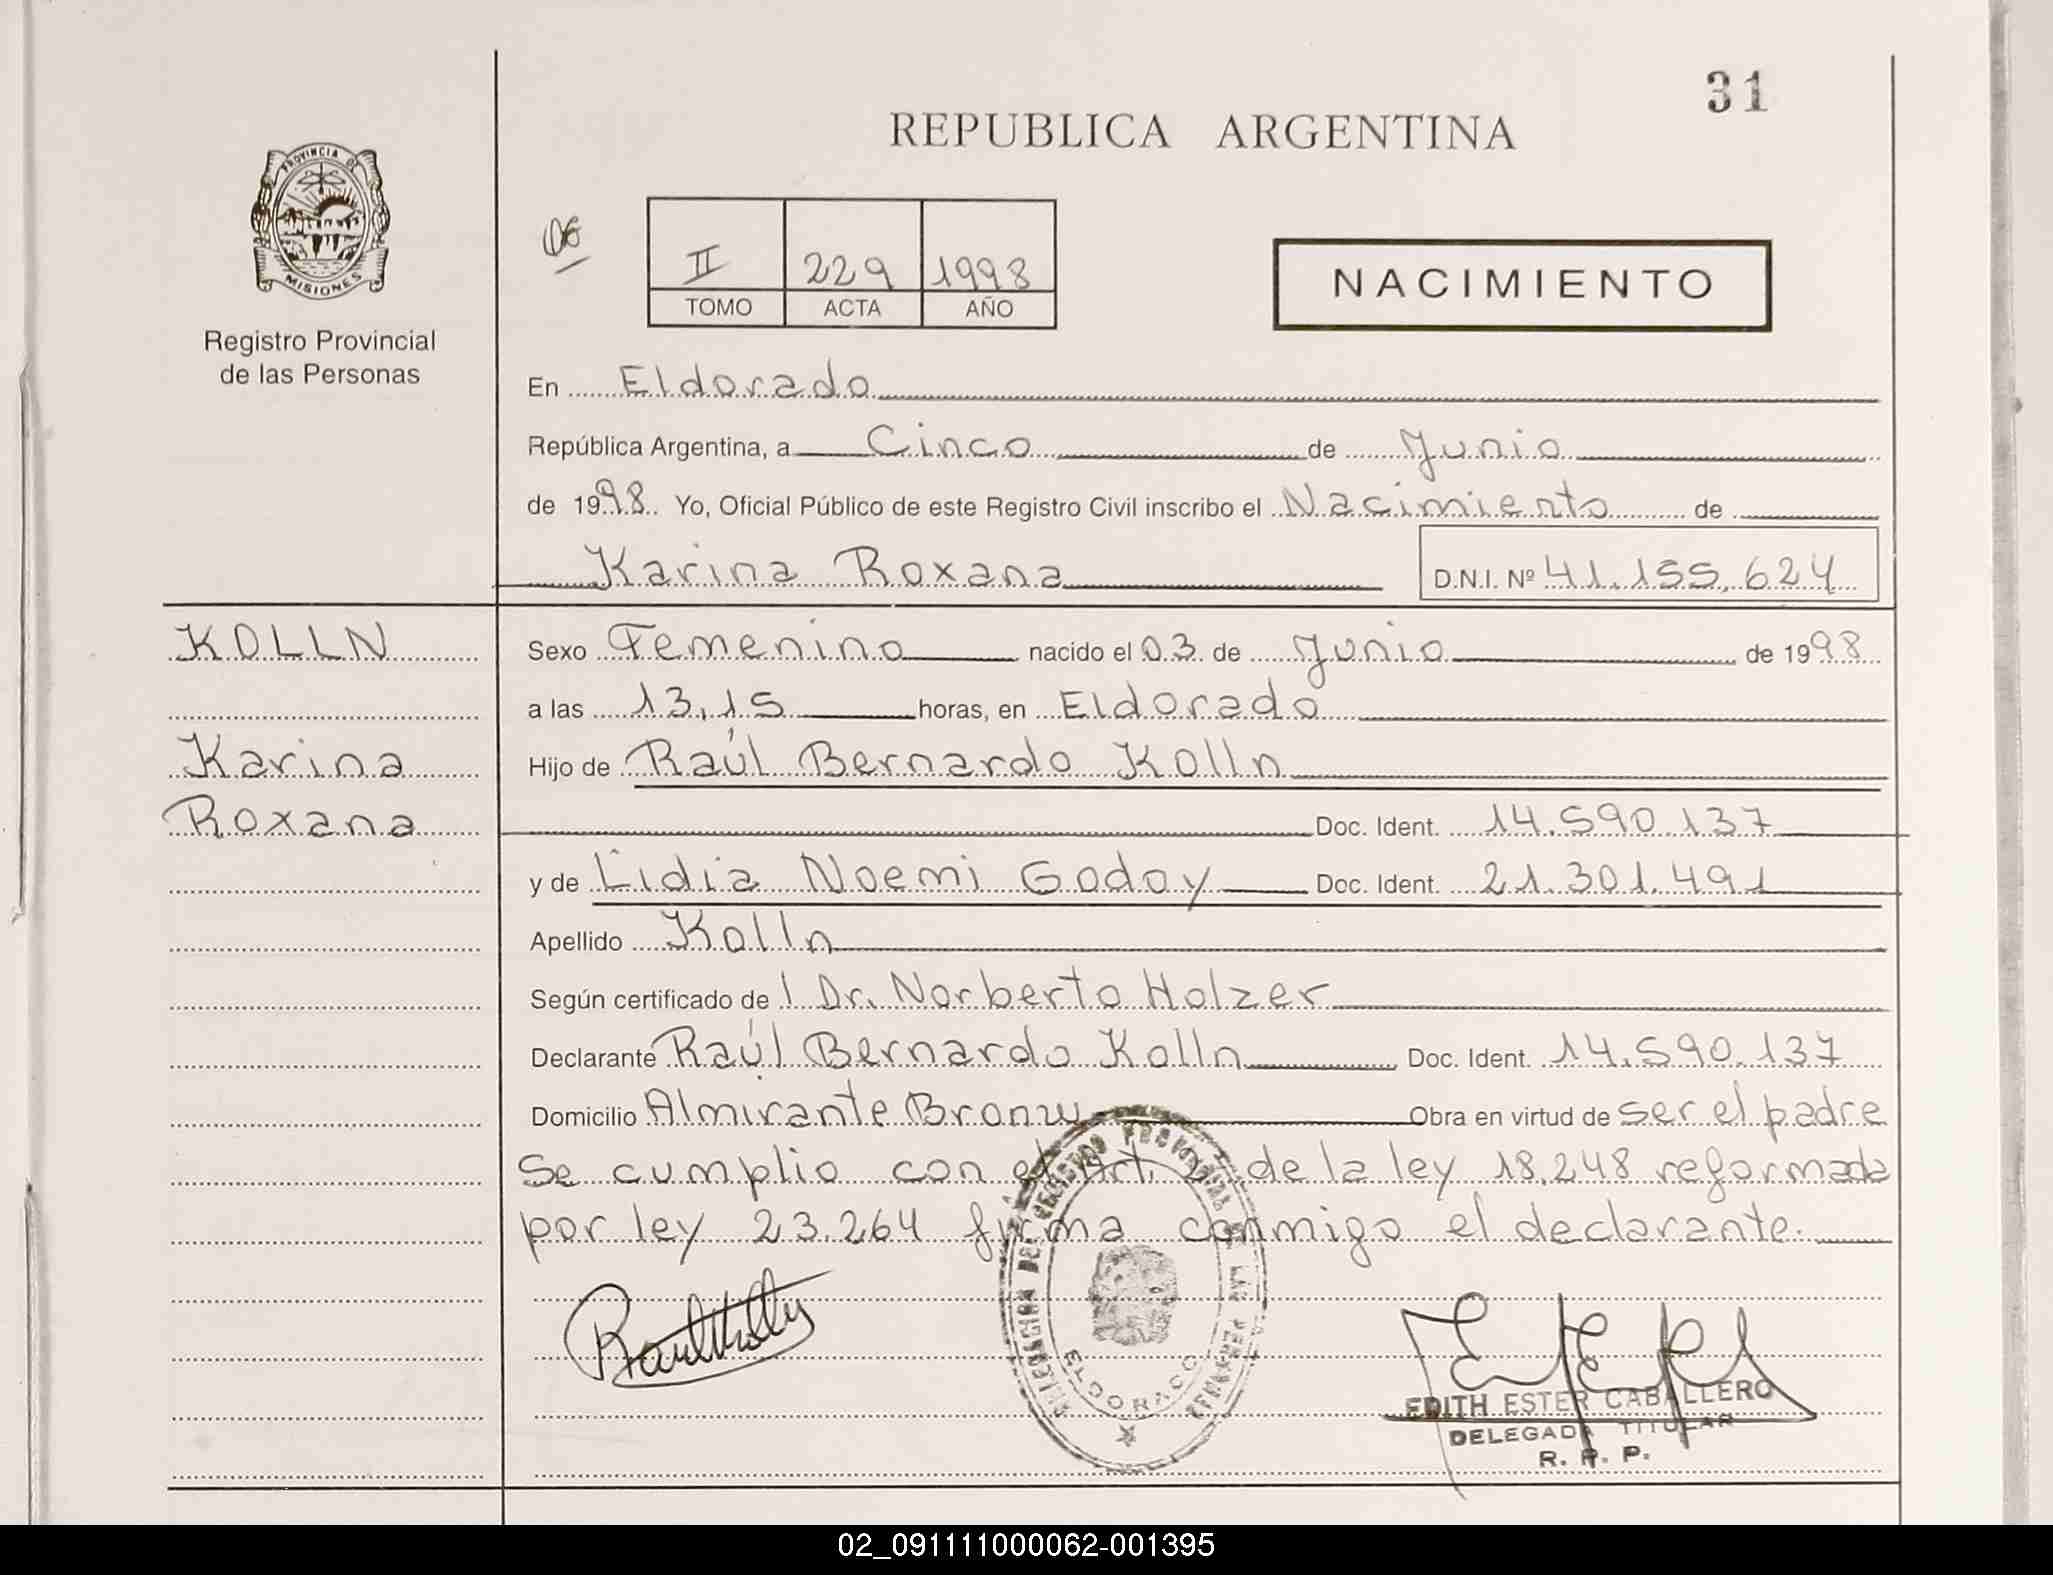 31
REPUBLICA ARGENTINA
PROVINCIA DE
MISIONES
Registro Provincial
de las Personas
06
II 229 1998
TOMO ACTA AÑO
NACIMIENTO
En Eldorado
República Argentina, a Cinco de Junio
de 1998 Yo, Oficial Público de este Registro Civil inscribo el Nacimiento de
Karina Roxana D.N.I. Nº 41.155.624
KOLLN Sexo Femenino nacido el 03 de Junio de 1998
a las 13,15 horas, en Eldorado
Karina Hijo de Raúl Bernardo Kolln
Roxana Doc. Ident. 14.590.137
y de Lidia Noemi Godoy Doc. Ident. 21.301.491
Apellido Kolln
Según certificado de l Dr. Norberto Holzer
Declarante Raúl Bernardo Kolln Doc. Ident. 14.590.137
Domicilio Almirante Obra en virtud de ser el padre
Se cumplio con el Art. de la ley 18.248 reformada
por ley 23.264 firma conmigo el declarante.
DELEGACION DEL REGISTRO PROVINCIAL DE LAS PERSONAS
ELDORADO
EDITH ESTER CABALLERO
DELEGADA TITULAR
R. P. P.
02_091111000062-001395